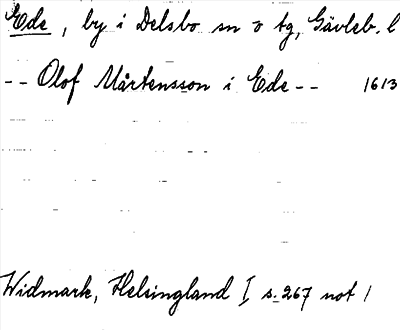 Ede, by i Delsbo sn o tg, Gävleb. l
-- Olof Mårtensson i Ede -- 1613
Widmark, Helsingland I s. 267 not 1